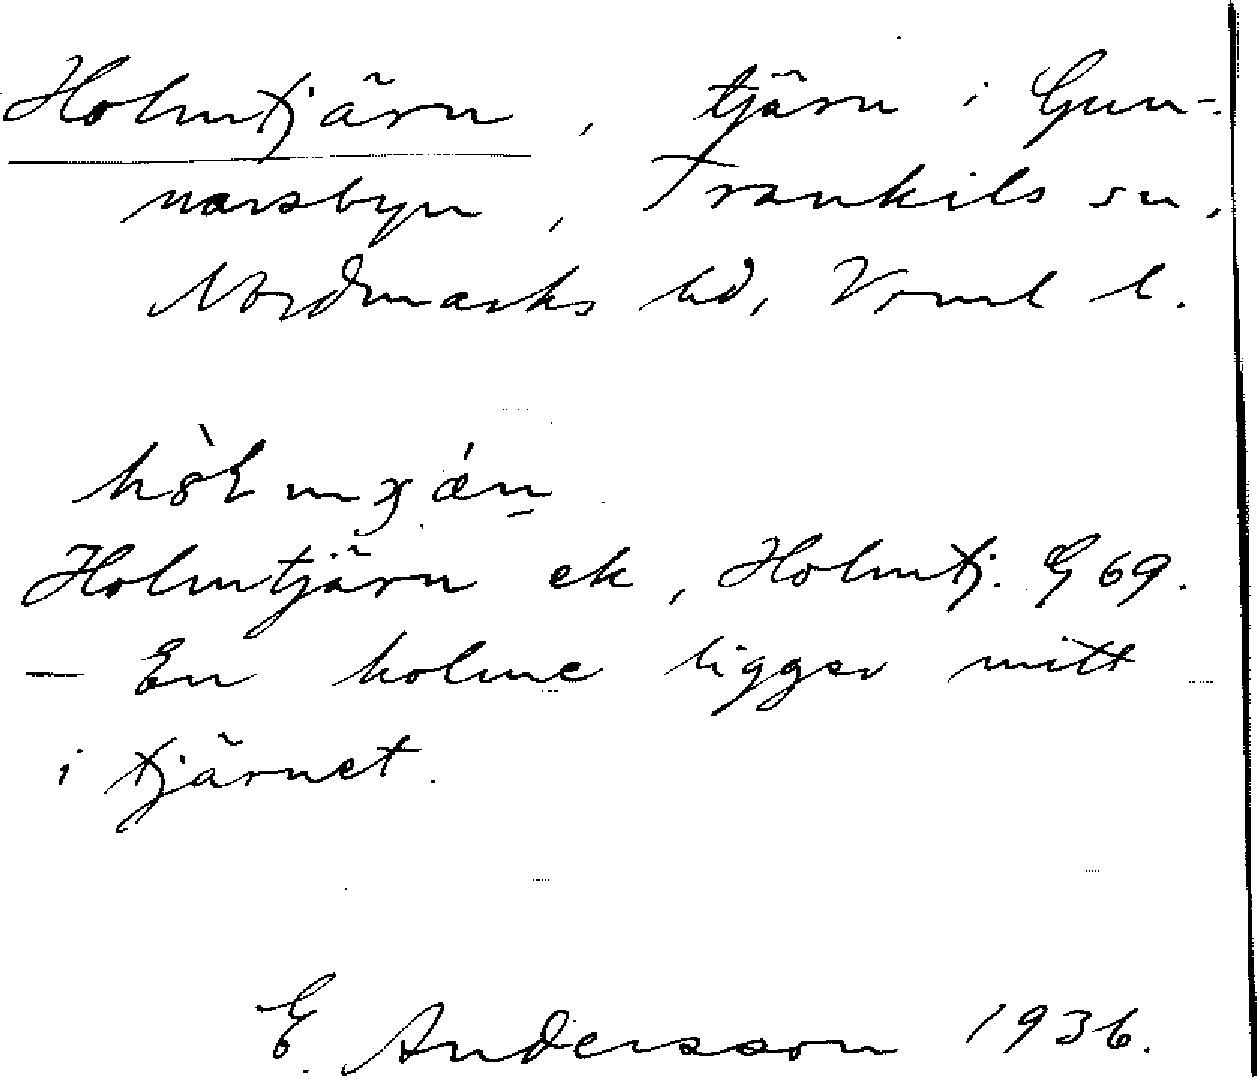 Holmtjärn, tjärn i Gun-
narsbyn, Trankils sn,
Nordmarks hd, Vrml l.
Holmtjärn ek, Holmtj. G 69.
— En holme ligger mitt
i tjärnet.
E. Andersson 1936.